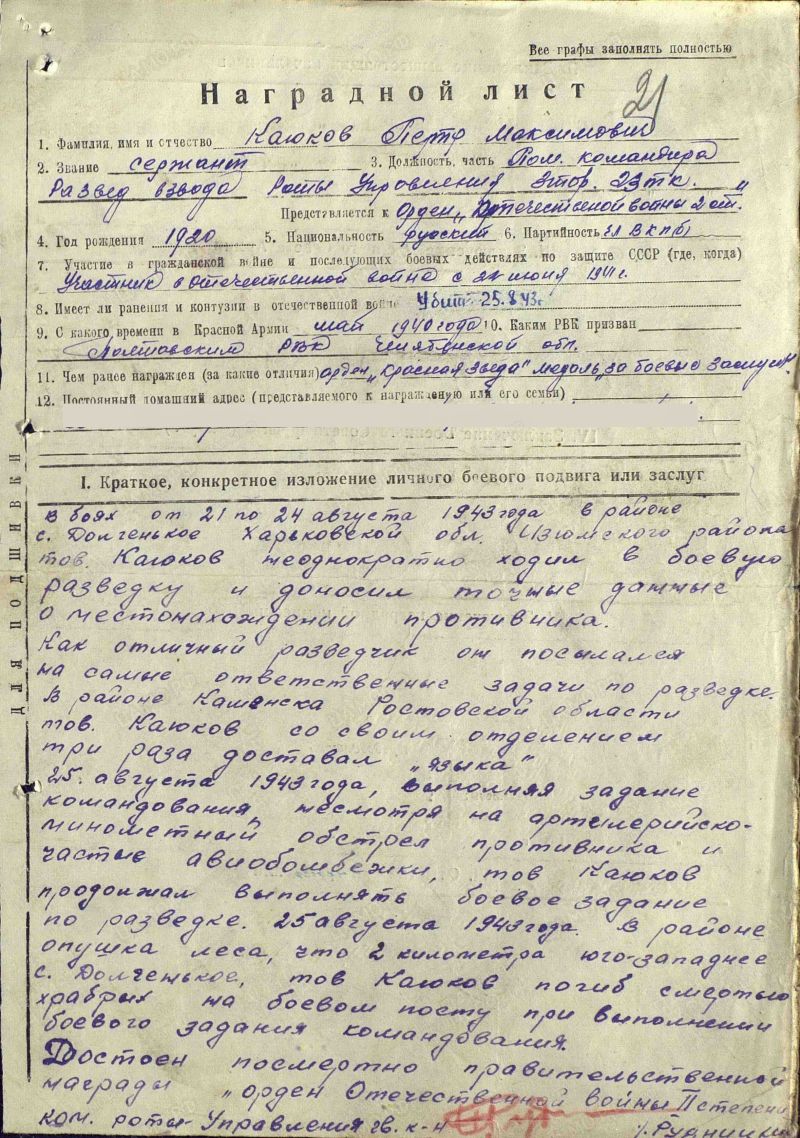 Все графы заполнять полностью
Наградной лист
21
1. Фамилия, имя и отчество Каюков Петр Максимович
2. Звание сержант 3. Должность, часть Пом. командира
Развед взвода Роты Управления 39тбр. 23тк.
Представляется к Орден „Отечественной войны 2 ст."
4. Год рождения 1920 5. Национальность русский 6. Партийность чл ВКПб
7. Участие в гражданской войне и последующих боевых действиях по защите СССР (где, когда)
Участник в отечественной война с июня 1941г.
8. Имеет ли ранения и контузии в отечественной войне Убит 25.8.43г
9. С какого времени в Красной Армии май 1940 года 10. Каким РВК призван
Полтовским РВК Челябинской обл.
11. Чем ранее награжден (за какие отличия) орден „Красная Звезда" медаль „за боевые заслуги"
12. Постоянный домашний адрес (представляемого к награждению или его семьи)
ДЛЯ ПОДШИВКИ
I. Краткое, конкретное изложение личного боевого подвига или заслуг
В боях от 21 по 24 августа 1943 года в районе
с. Долгенькое Харьковской обл. Изюмского района
тов. Каюков неоднократно ходил в боевую
разведку и доносил точные данные
о местонахождении противника.
Как отличный разведчик он посылался
на самые ответственные задачи по разведке.
В районе Каменска Ростовской области
тов. Каюков со своим отделением
три раза доставал „языка"
25. августа 1943 года, выполняя задание
командования, несмотря на артилерийско-
минометный обстрел противника и
частые авиобомбежки, тов Каюков
продолжал выполнять боевое задание
по разведке. 25 августа 1943 года. В районе
опушка леса, что 2 километра юго-западнее
с. Долгенькое, тов Каюков погиб смертью
храбрых на боевом посту при выполнении
боевого задания командования.
Достоен посмертно правительственной
награды „орден Отечественной войны II степени
ком. роты Управления гв. к-н /.Рудницкий